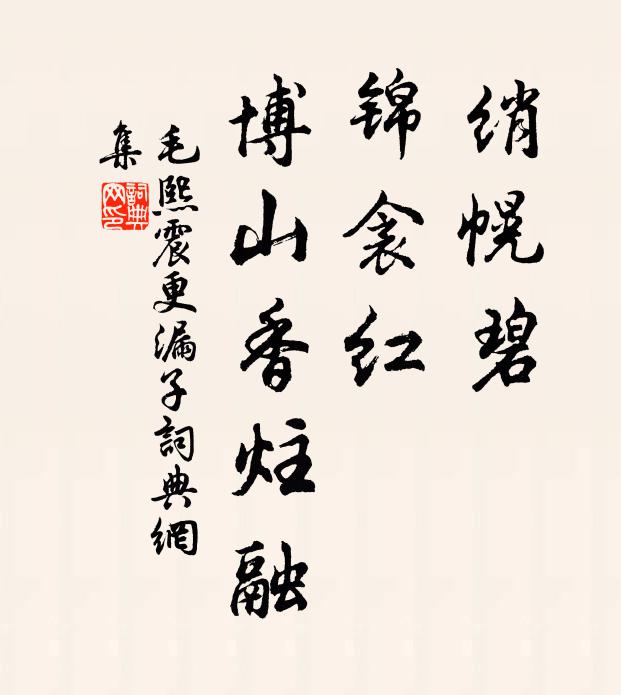 绡幌碧
锦衾红
博山香炷融
毛熙震更漏子詞典網
集
詞典
网印